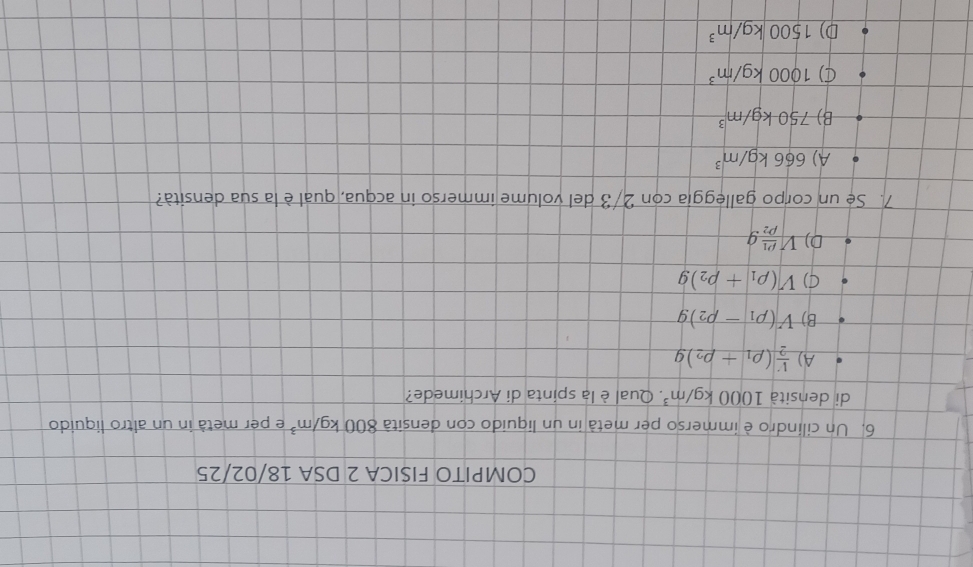 COMPITO FISICA 2 DSA 18/02/25
6. Un cilindro è immerso per metà in un liquido con densità 800 kg/m³ e per metà in un altro liquido
di densità 1000 kg/m³. Qual è la spinta di Archimede?
• A) V/2 (ρ₁ + ρ₂)g
• B) V(ρ₁ − ρ₂)g
• C) V(ρ₁ + ρ₂)g
• D) V ρ₁/ρ₂ g
7. Se un corpo galleggia con 2/3 del volume immerso in acqua, qual è la sua densità?
• A) 666 kg/m³
• B) 750 kg/m³
• C) 1000 kg/m³
• D) 1500 kg/m³